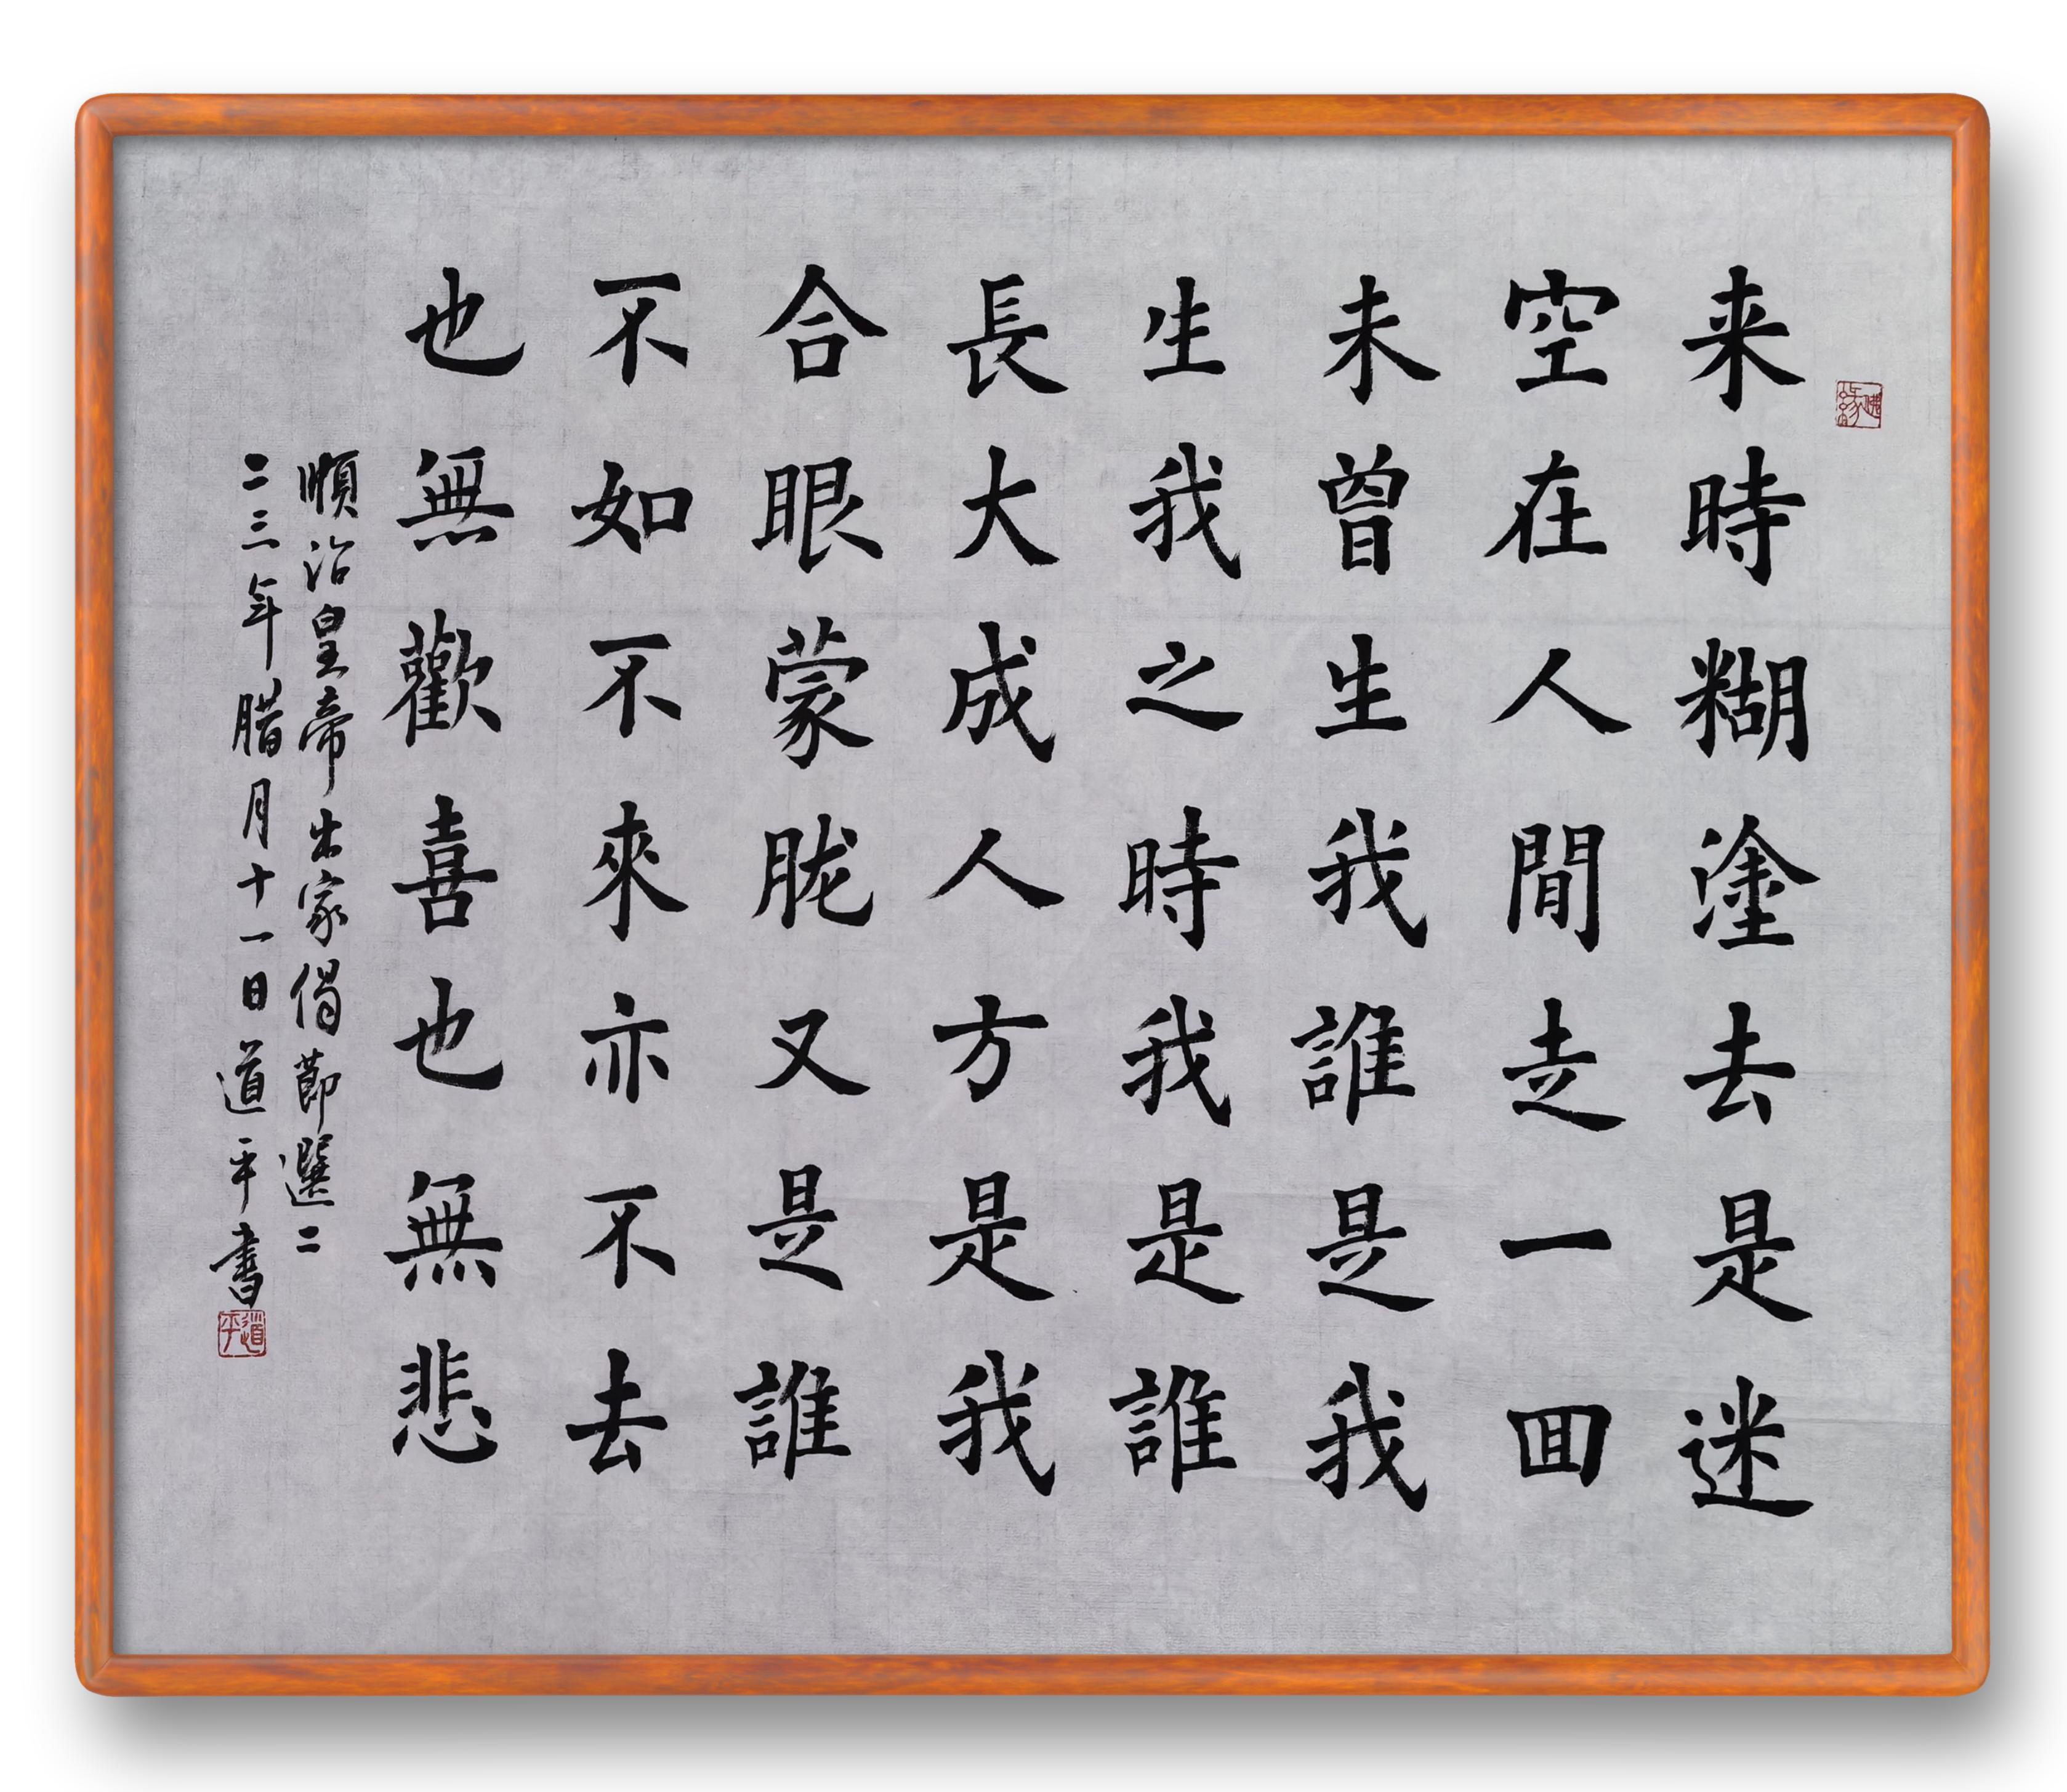 佛緣
来時糊塗去是迷
空在人間走一囬
未曾生我誰是我
生我之時我是誰
長大成人方是我
合眼蒙胧又是誰
不如不來亦不去
也無歡喜也無悲
順治皇帝出家偈節選二
二三年腊月十一日道平書
道平